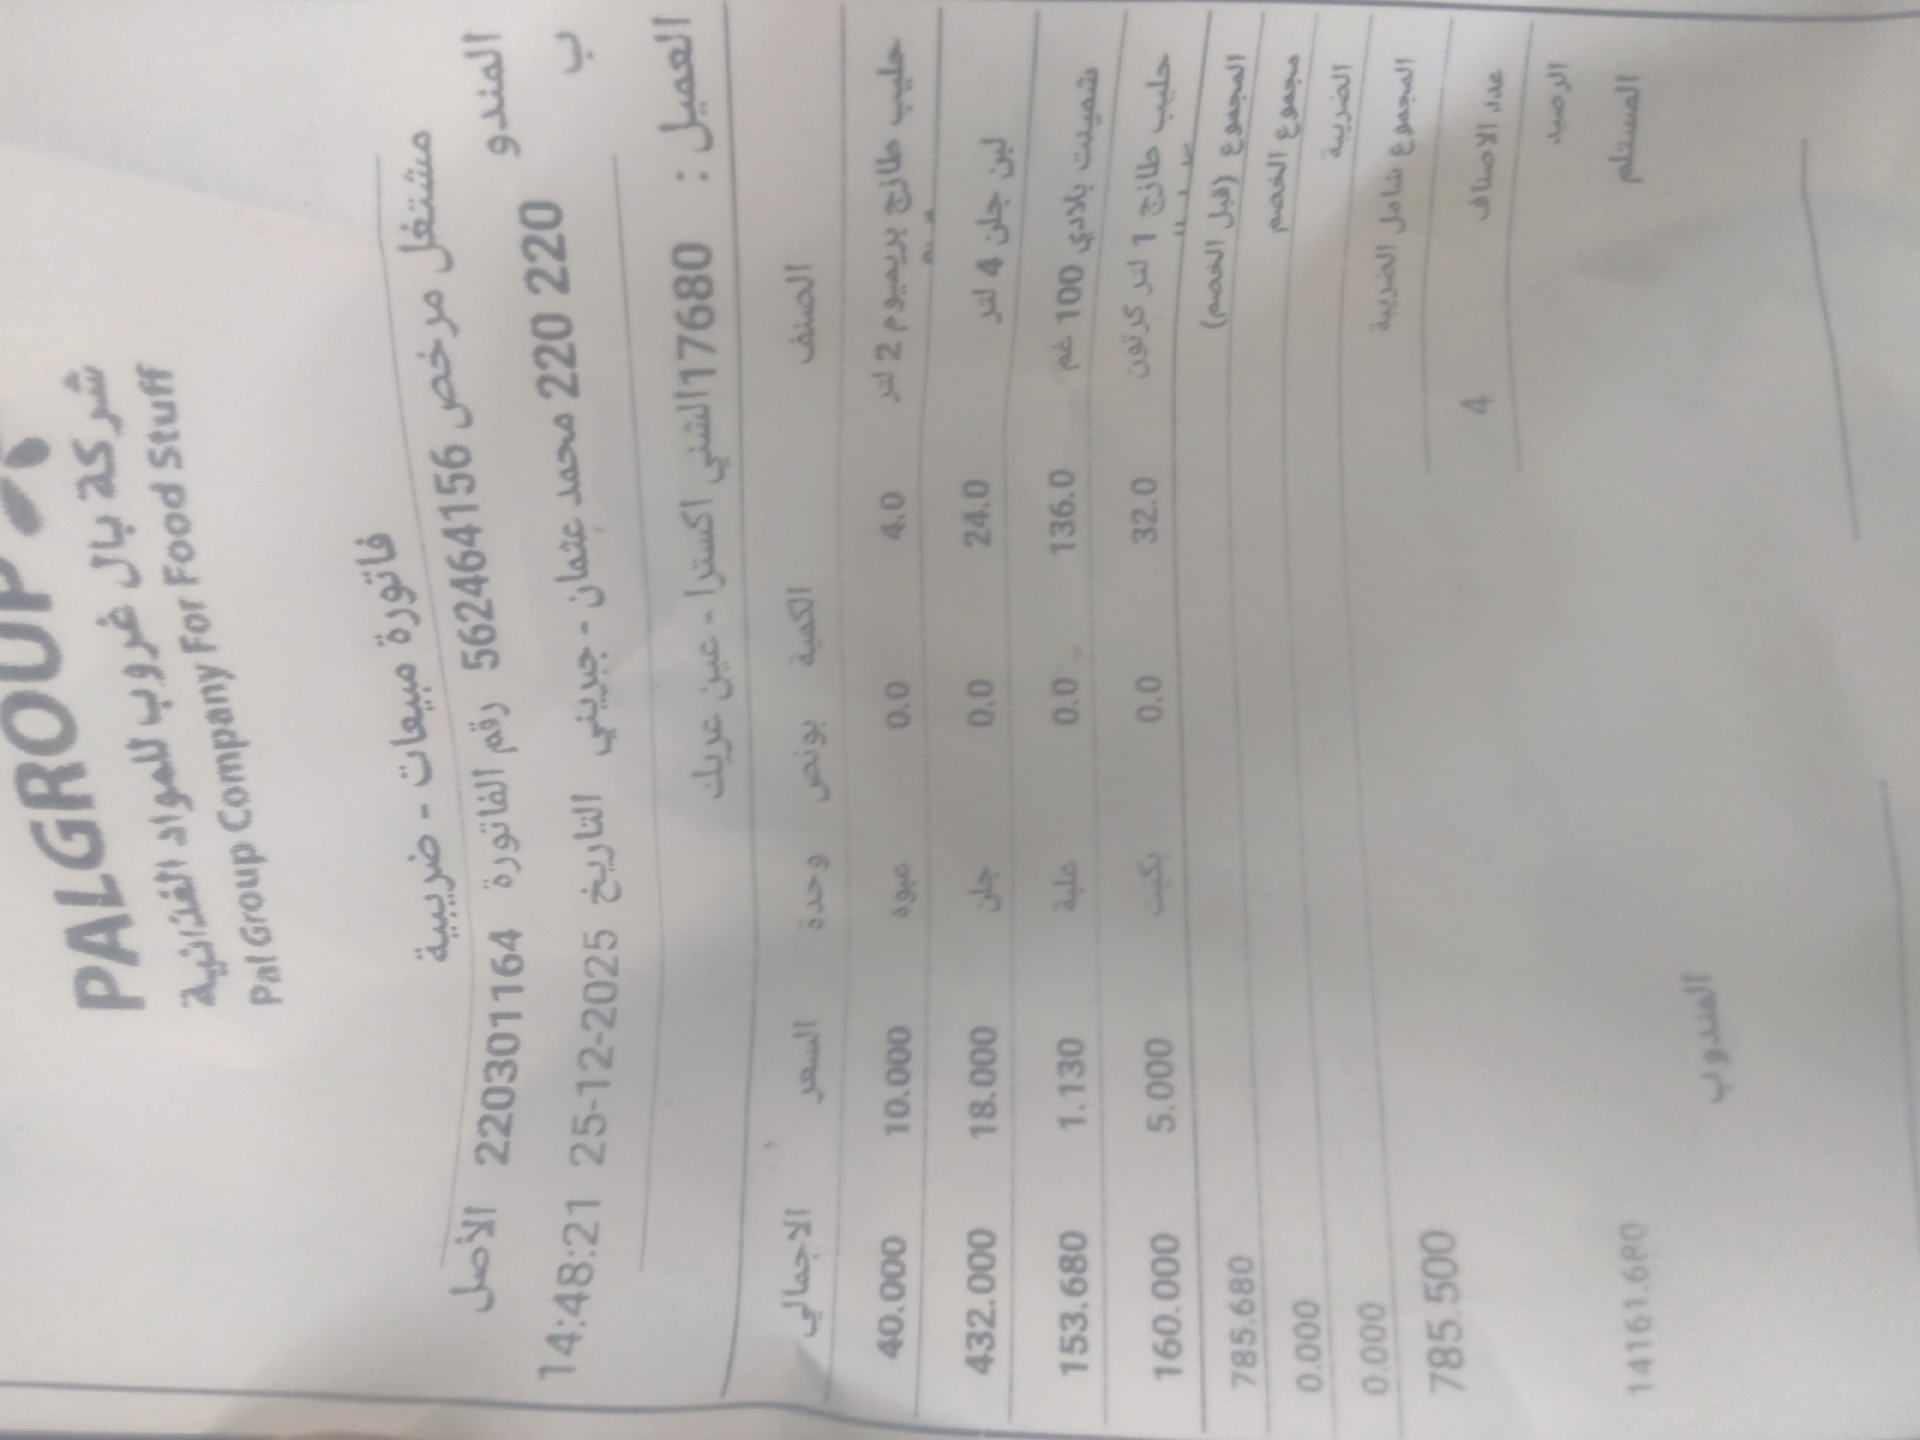 PALGROUP
شركة بال غروب للمواد الغذائية
Pal Group Company For Food Stuff
فاتورة مبيعات - ضريبية
مشتغل مرخص 562464156 رقم الفاتورة 220301164 الأصل
المندوب 220 220 محمد عثمان - جبريني التاريخ 25-12-2025 14:48:21
العميل : 17680 الشني اكسترا - عين عريك
الصنف الكمية بونص وحدة السعر الاجمالي
حليب طازج بريميوم 2 لتر 4.0 0.0 عبوة 10.000 40.000
لبن جلن 4 لتر 24.0 0.0 جلن 18.000 432.000
شمينت بلادي 100 غم 136.0 0.0 علبة 1.130 153.680
حليب طازج 1 لتر كرتون 32.0 0.0 بكيت 5.000 160.000
المجموع (قبل الخصم) 785.680
مجموع الخصم 0.000
الضريبة 0.000
المجموع شامل الضريبة 785.500
عدد الاصناف 4
الرصيد 14161.680
المستلم المندوب